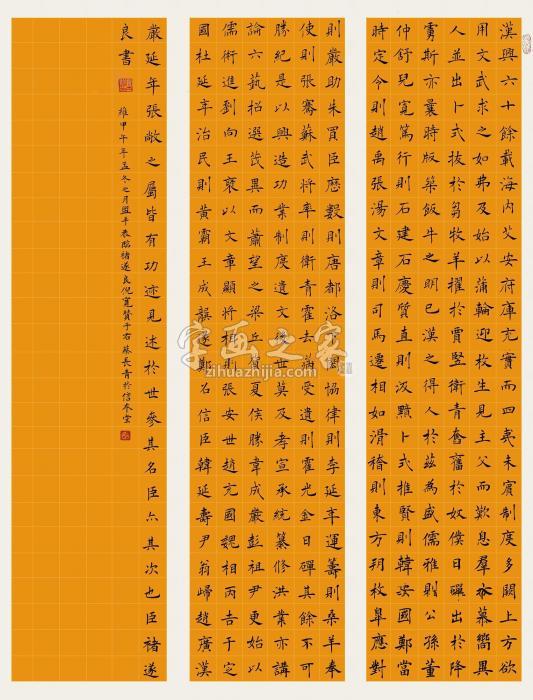 漢興六十餘載海内艾安府庫充實而四夷未賓制度多闕上方欲
用文武求之如弗及始以蒲輪迎枚生見主父而歎息羣士慕嚮異
人並出卜式拔於芻牧羊擢於賈竪衛青奮舊於奴僕日磾出於降
虜斯亦曩時版築飯牛之明已漢之得人於茲為盛儒雅則公孫董
仲舒兒寬篤行則石建石慶質直則汲黯卜式推賢則韓安國鄭當
時定令則趙禹張湯文章則司馬遷相如滑稽則東方朔枚臯應對
則嚴助朱買臣歷數則唐都洛閎協律則李延年運籌則桑羊奉
使則張騫蘇武將率則衛青霍去病受遺則霍光金日磾其餘不可
勝紀是以興造功業制度遺文後世莫及孝宣承統纂修洪業亦講
論六藝招選茂異而蕭望之梁丘賀夏侯勝韋成嚴彭祖尹更始以
儒術進劉向王褒以文章顯將相則張安世趙充國魏相丙吉于定
國杜延年治民則黃霸王成龔遂鄭召信臣韓延壽尹翁歸趙廣漢
嚴延年張敞之屬皆有功迹見述於世參其名臣亦其次也臣褚遂
良書
維甲午年孟冬之月臨褚遂良倪寬贊于右蔡長青於信奉堂
字画之家
zihuazhijia.com